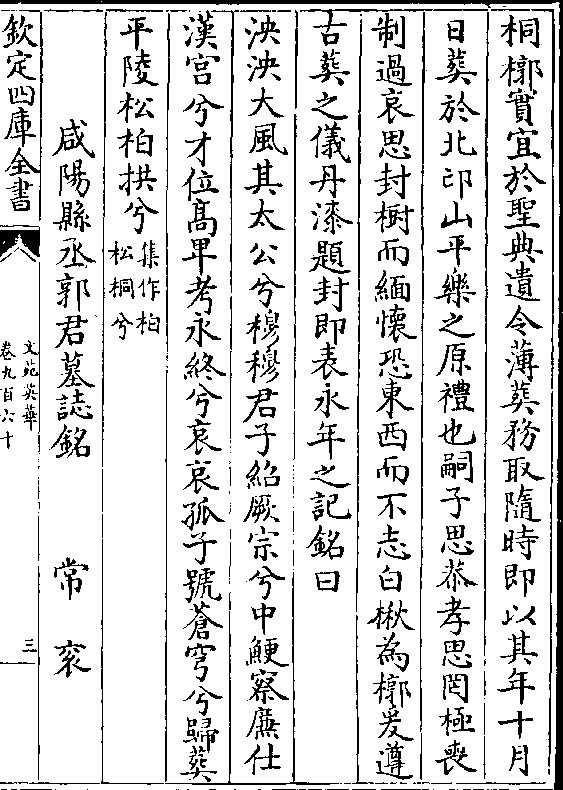 桐槨實宜於聖典遺令薄葬務取隨時即以其年十月
日葬於北邙山平樂之原禮也嗣子思恭孝思罔極喪
制過哀思封樹而緬懷恐東西而不志白楸為槨爰遵
古葬之儀丹漆題封即表永年之記銘曰
泱泱大風其太公兮穆穆君子紹厥宗兮中鯁察廉仕
漢宮兮才位高卑考永終兮哀哀孤子號蒼穹兮歸葬
平陵松柏拱兮集作柏松桐兮
咸陽縣丞郭君墓誌銘 常衮
欽定四庫全書
文苑英華
卷九百六十
三